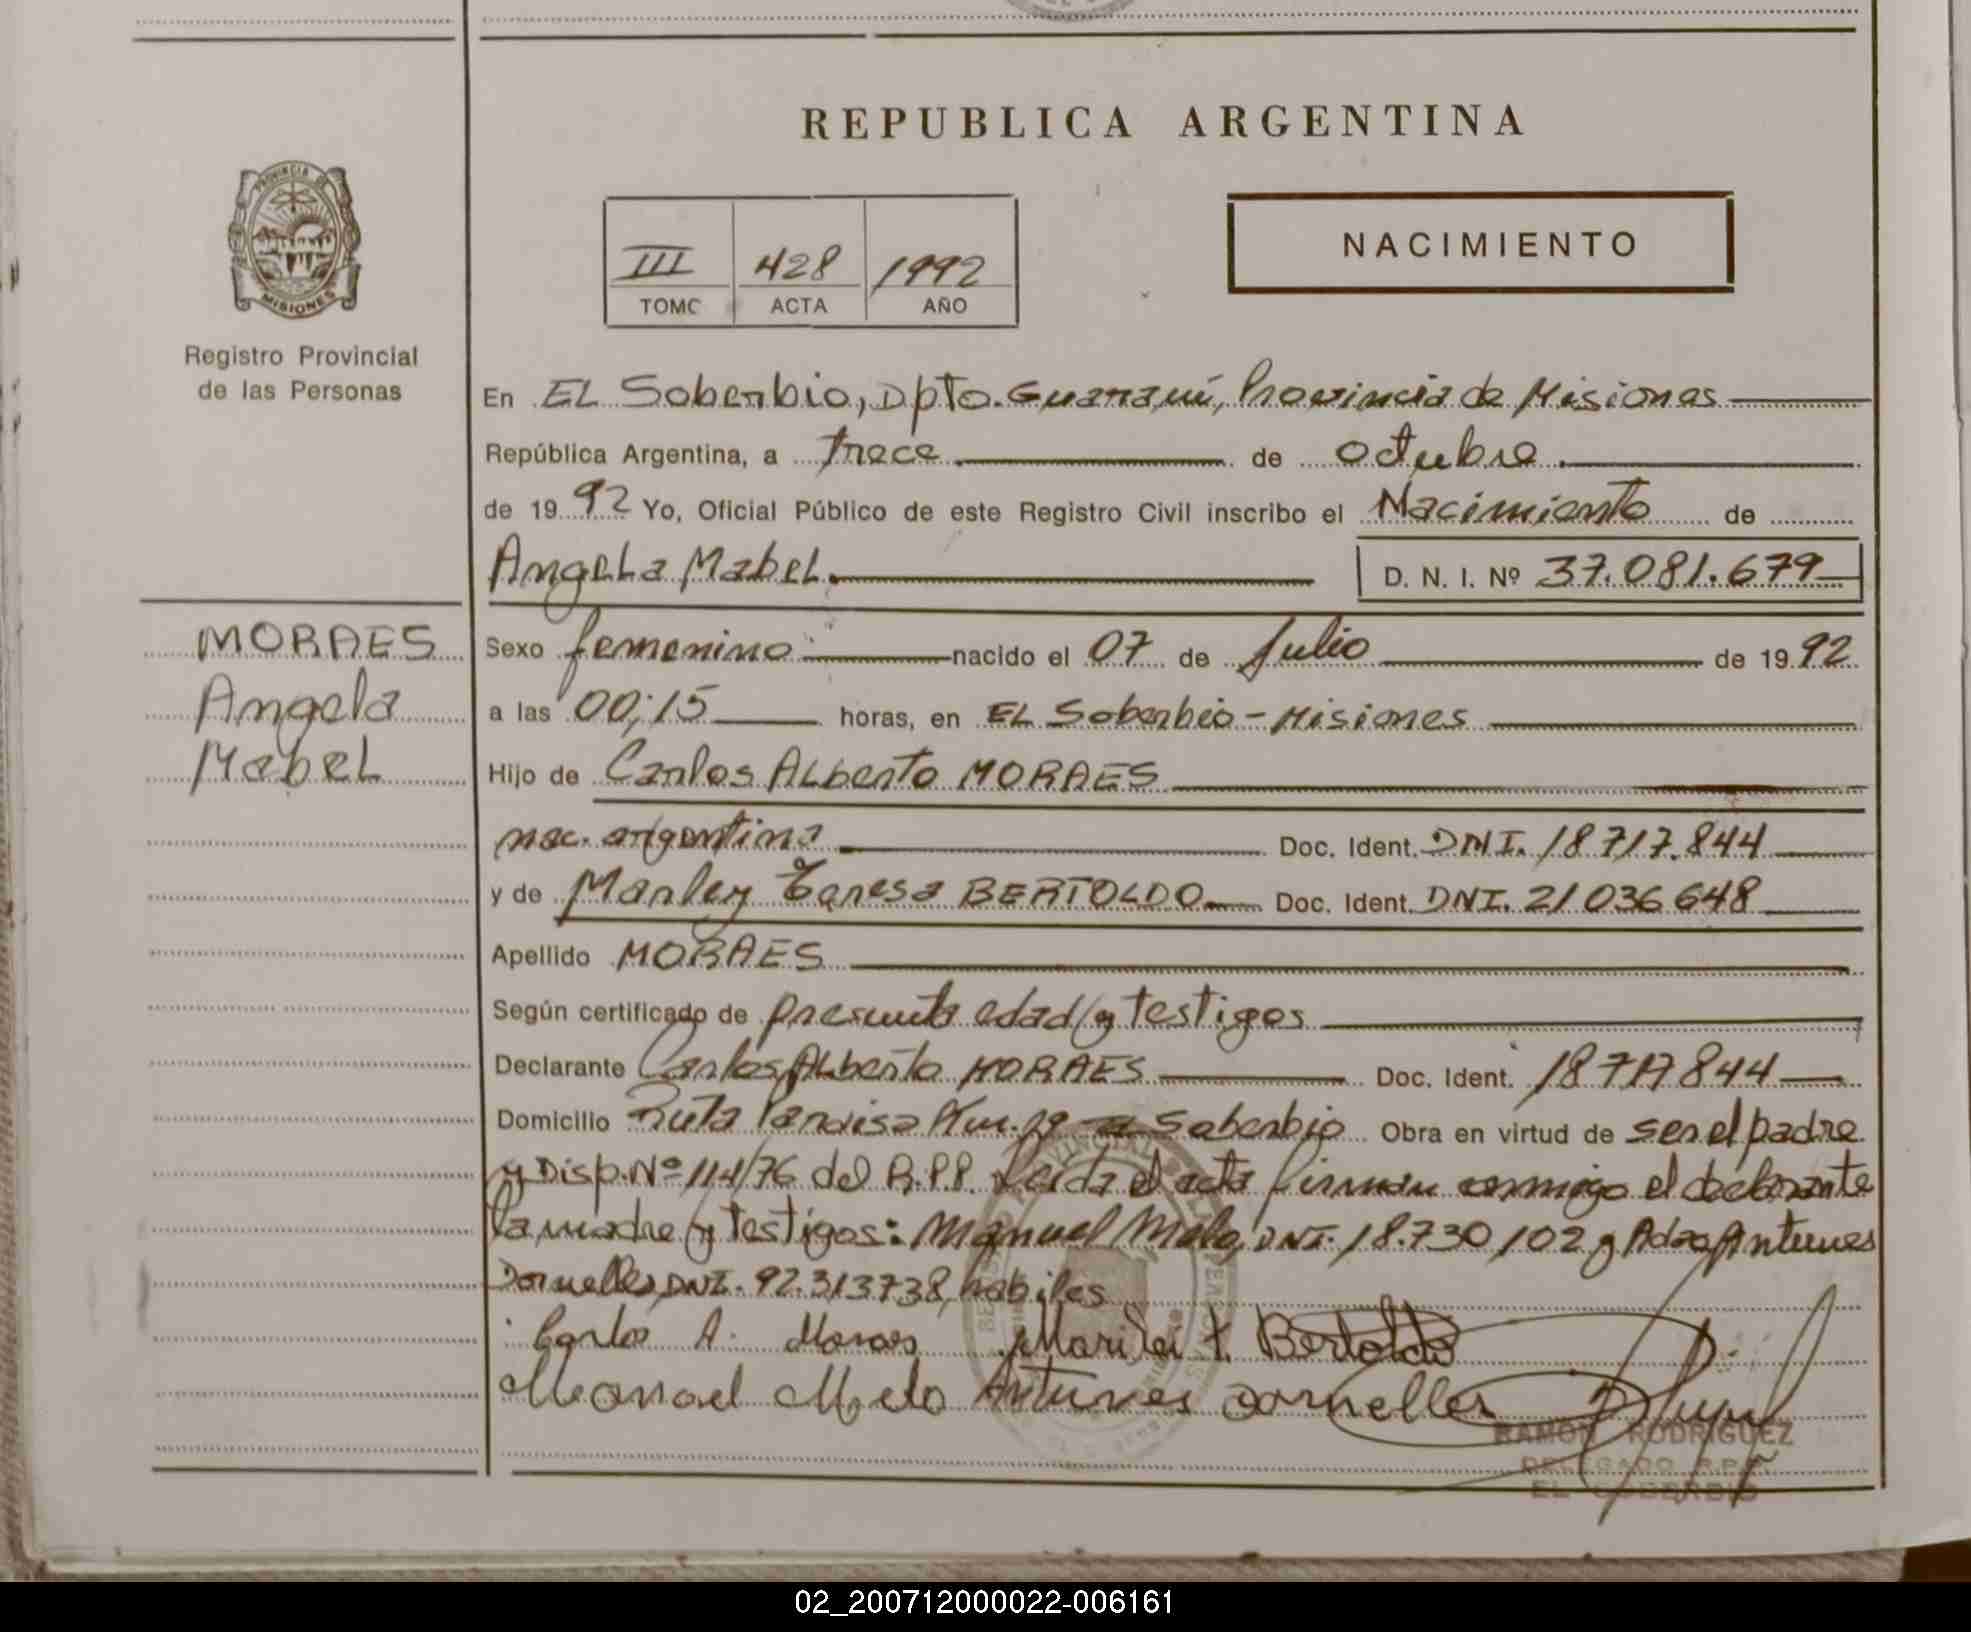 REPUBLICA ARGENTINA
PROVINCIA DE
MISIONES
Registro Provincial
de las Personas
III 428 1992
TOMO ACTA AÑO
NACIMIENTO
En EL Soberbio, Dpto. Guaraní, Provincia de Misiones
República Argentina, a trece de octubre
de 1992 Yo, Oficial Público de este Registro Civil inscribo el Nacimiento de
Angela Mabel. D. N. I. Nº 37.081.679
MORAES
Angela
Mabel
Sexo femenino nacido el 07 de Julio de 1992
a las 00;15 horas, en EL Soberbio - Misiones
Hijo de Carlos Alberto MORAES
nac. argentina Doc. Ident. DNI. 18717.844
y de Marley Teresa BERTOLDO Doc. Ident. DNI. 21036648
Apellido MORAES
Según certificado de presunta edad y testigos
Declarante Carlos Alberto MORAES Doc. Ident. 18717844
Domicilio Ruta Soberbio Obra en virtud de ser el padre
y Disp. Nº 114/76 del R.P.P. Leida el acta firman conmigo el declarante
la madre y testigos: Manuel Melo, DNI. 18.730102 y Adao Antunes
Dornelles DNI. 92.313738, habiles
Carlos A. Moraes Marilei T. Bertoldo
Manoel Melo Antunes Dornelles
RAMON RODRIGUEZ
DELEGADO R.P.P.
EL SOBERBIO
02_200712000022-006161